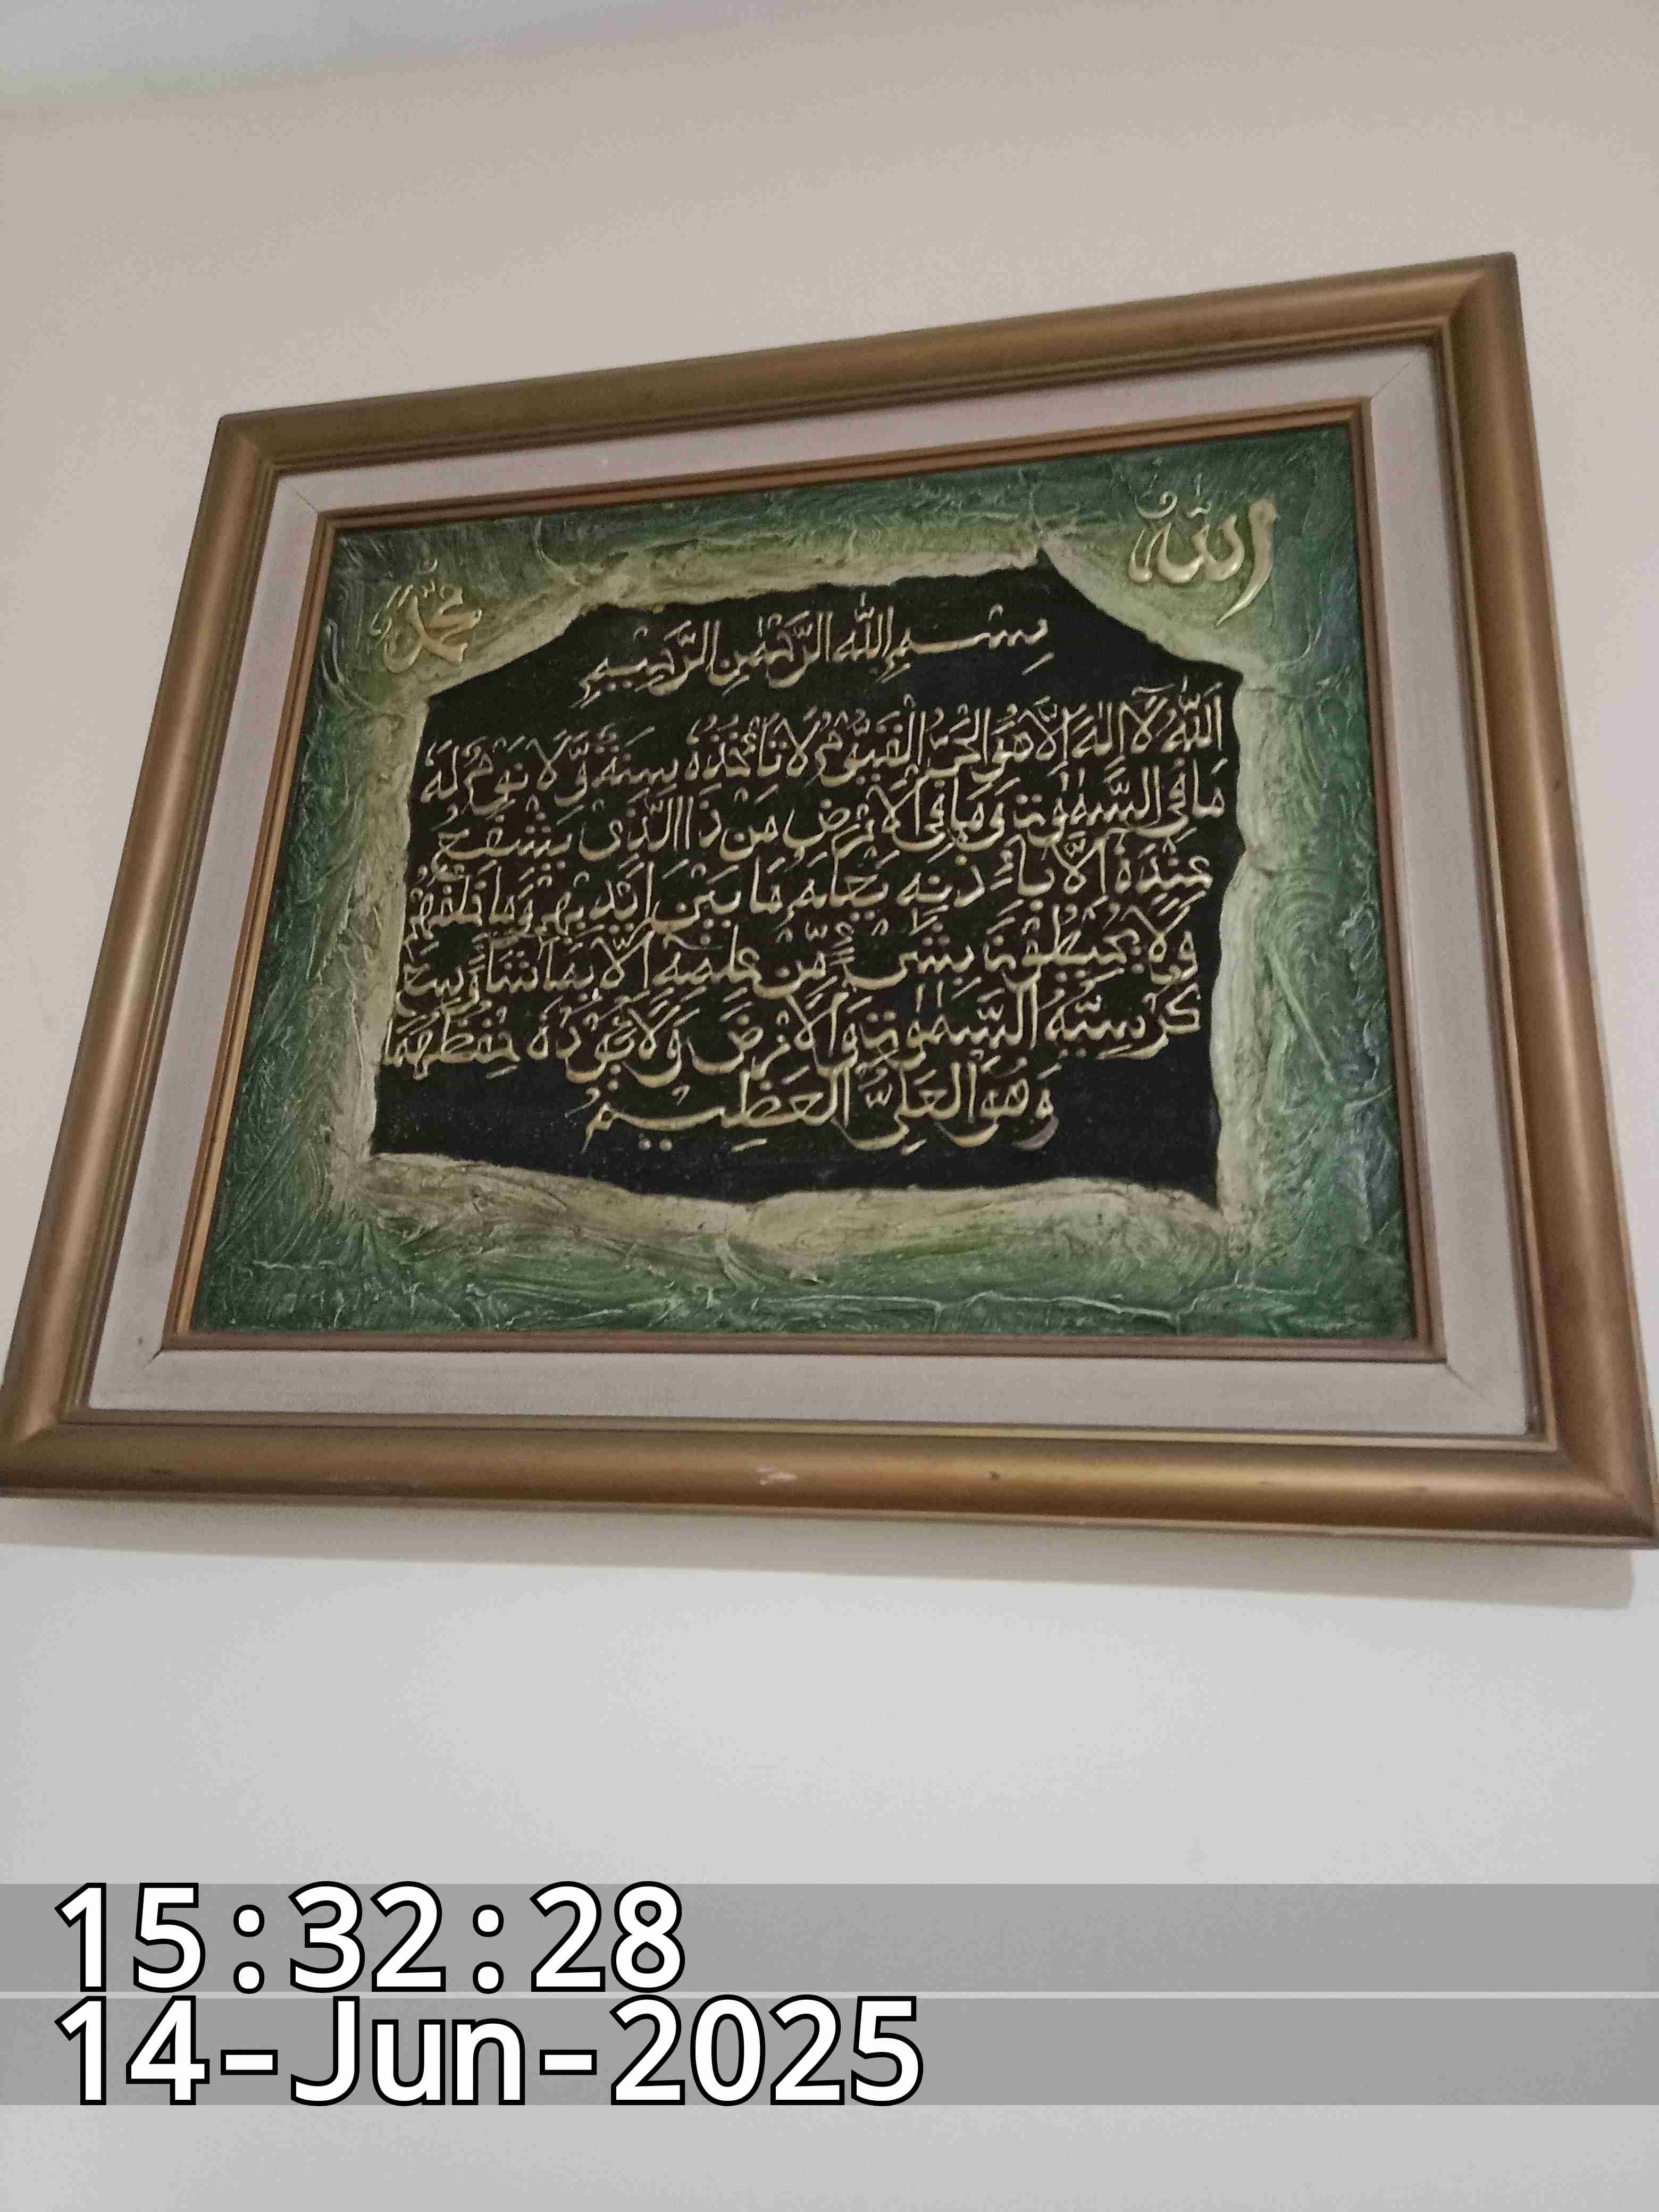 الله
محمد
بِسْمِ اللهِ الرَّحْمٰنِ الرَّحِيْمِ
اَللهُ لَآ اِلٰهَ اِلَّا هُوَ الْحَيُّ الْقَيُّوْمُ لَا تَأْخُذُهٗ سِنَةٌ وَّلَا نَوْمٌ لَهٗ
مَا فِى السَّمٰوٰتِ وَمَا فِى الْاَرْضِ مَنْ ذَا الَّذِيْ يَشْفَعُ
عِنْدَهٗ اِلَّا بِاِذْنِهٖ يَعْلَمُ مَا بَيْنَ اَيْدِيْهِمْ وَمَا خَلْفَهُمْ
وَلَا يُحِيْطُوْنَ بِشَيْءٍ مِّنْ عِلْمِهٖ اِلَّا بِمَا شَآءَ وَسِعَ
كُرْسِيُّهُ السَّمٰوٰتِ وَالْاَرْضَ وَلَا يَئُوْدُهٗ حِفْظُهُمَا
وَهُوَ الْعَلِيُّ الْعَظِيْمُ
15:32:28
14-Jun-2025